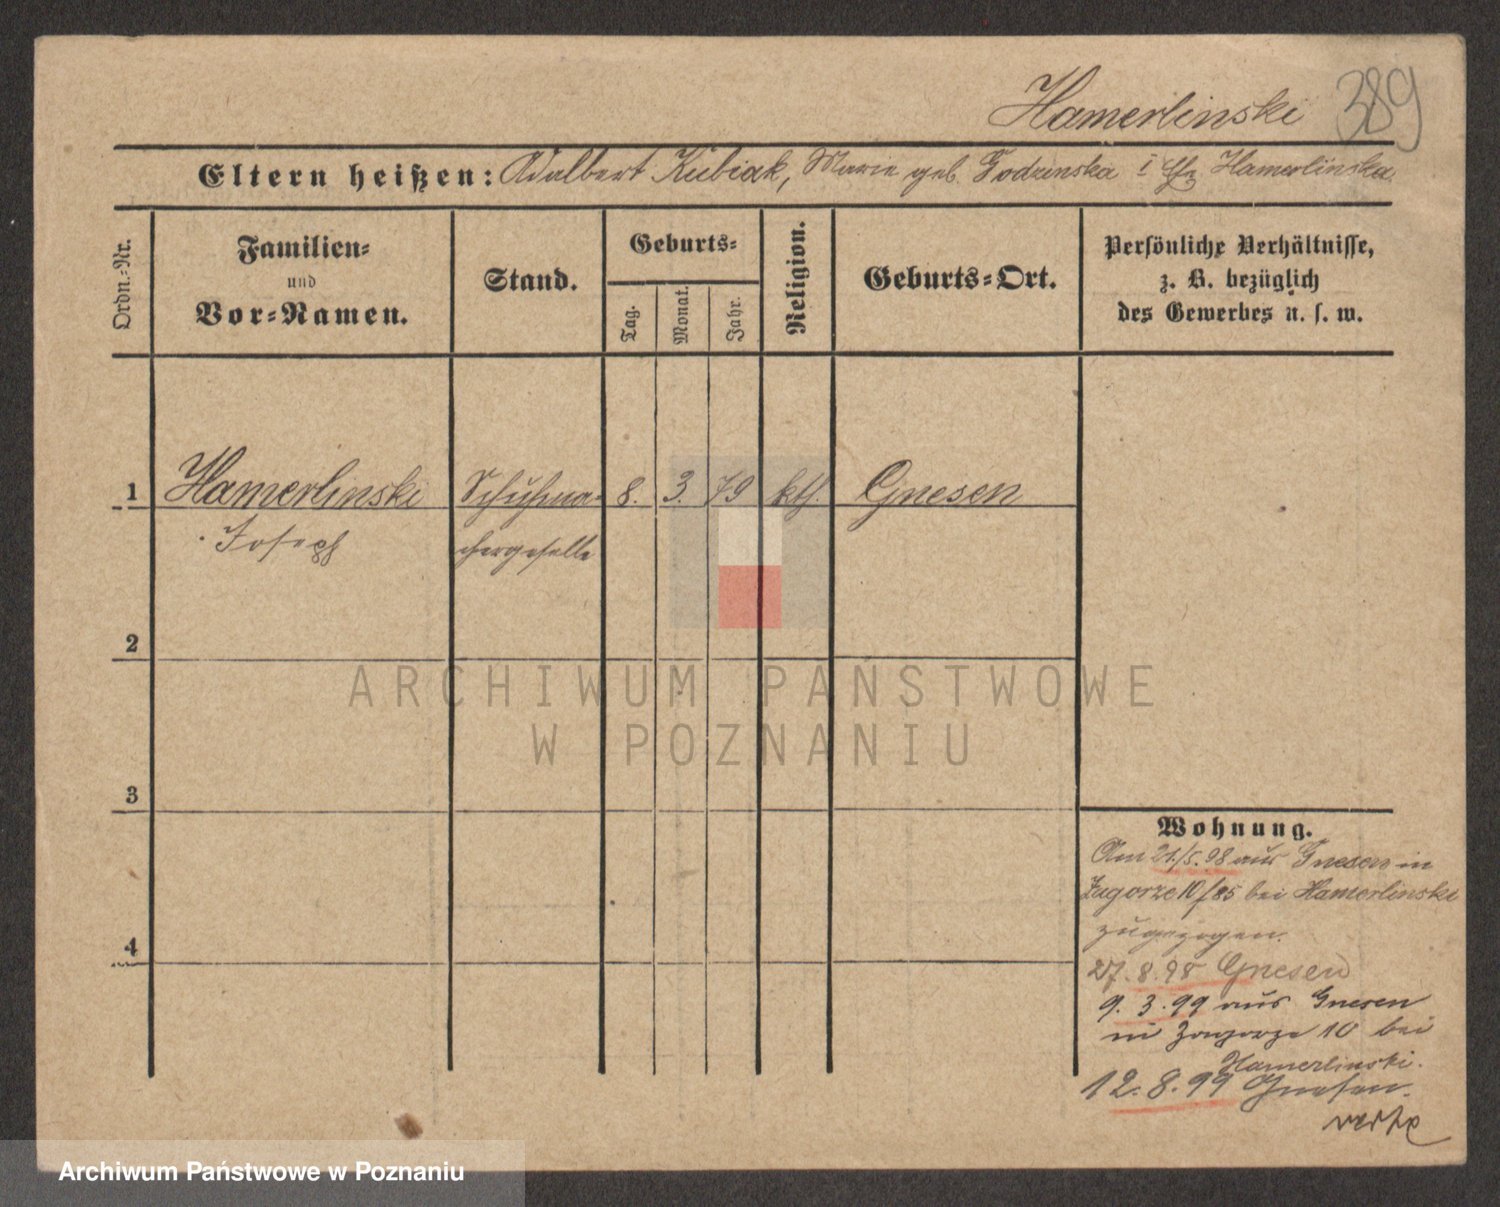 Hamerlinski 389
Eltern heißen: Adalbert Kubiak, Marie geb. Godzinska Hamerlinska
Ordn.-Nr.
Familien-
und
Vor-Namen.
Stand.
Geburts-
Tag.
Monat.
Jahr.
Religion.
Geburts-Ort.
Persönliche Verhältnisse,
z. B. bezüglich
des Gewerbes u. s. w.
1 Hamerlinski Schuhma- 8. 3. 79 kth. Gnesen
Joseph chergeselle
2
ARCHIWUM PAŃSTWOWE
W POZNANIU
3
Wohnung.
Am 21./5.98 aus Gnesen in
Zagorze 10/85 bei Hamerlinski
zugezogen.
4
27.8.98 Gnesen
9.3.99 aus Gnesen
in Zagorze 10 bei
Hamerlinski.
12.8.99 Gnesen.
verte
Archiwum Państwowe w Poznaniu